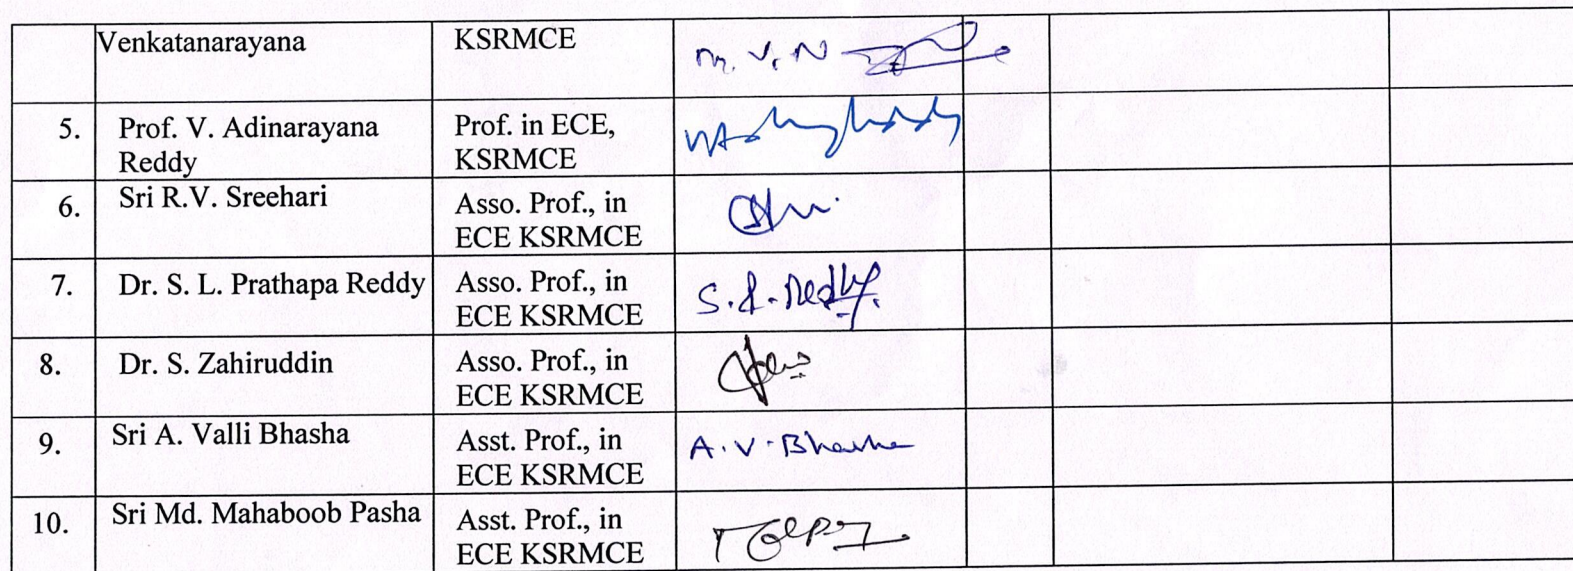 Venkatanarayana KSRMCE
M. V. N
5. Prof. V. Adinarayana Prof. in ECE,
Reddy KSRMCE
6. Sri R.V. Sreehari Asso. Prof., in
ECE KSRMCE
7. Dr. S. L. Prathapa Reddy Asso. Prof., in
ECE KSRMCE
S. L. Reddy
8. Dr. S. Zahiruddin Asso. Prof., in
ECE KSRMCE
9. Sri A. Valli Bhasha Asst. Prof., in
ECE KSRMCE
A. V. Bhasha
10. Sri Md. Mahaboob Pasha Asst. Prof., in
ECE KSRMCE